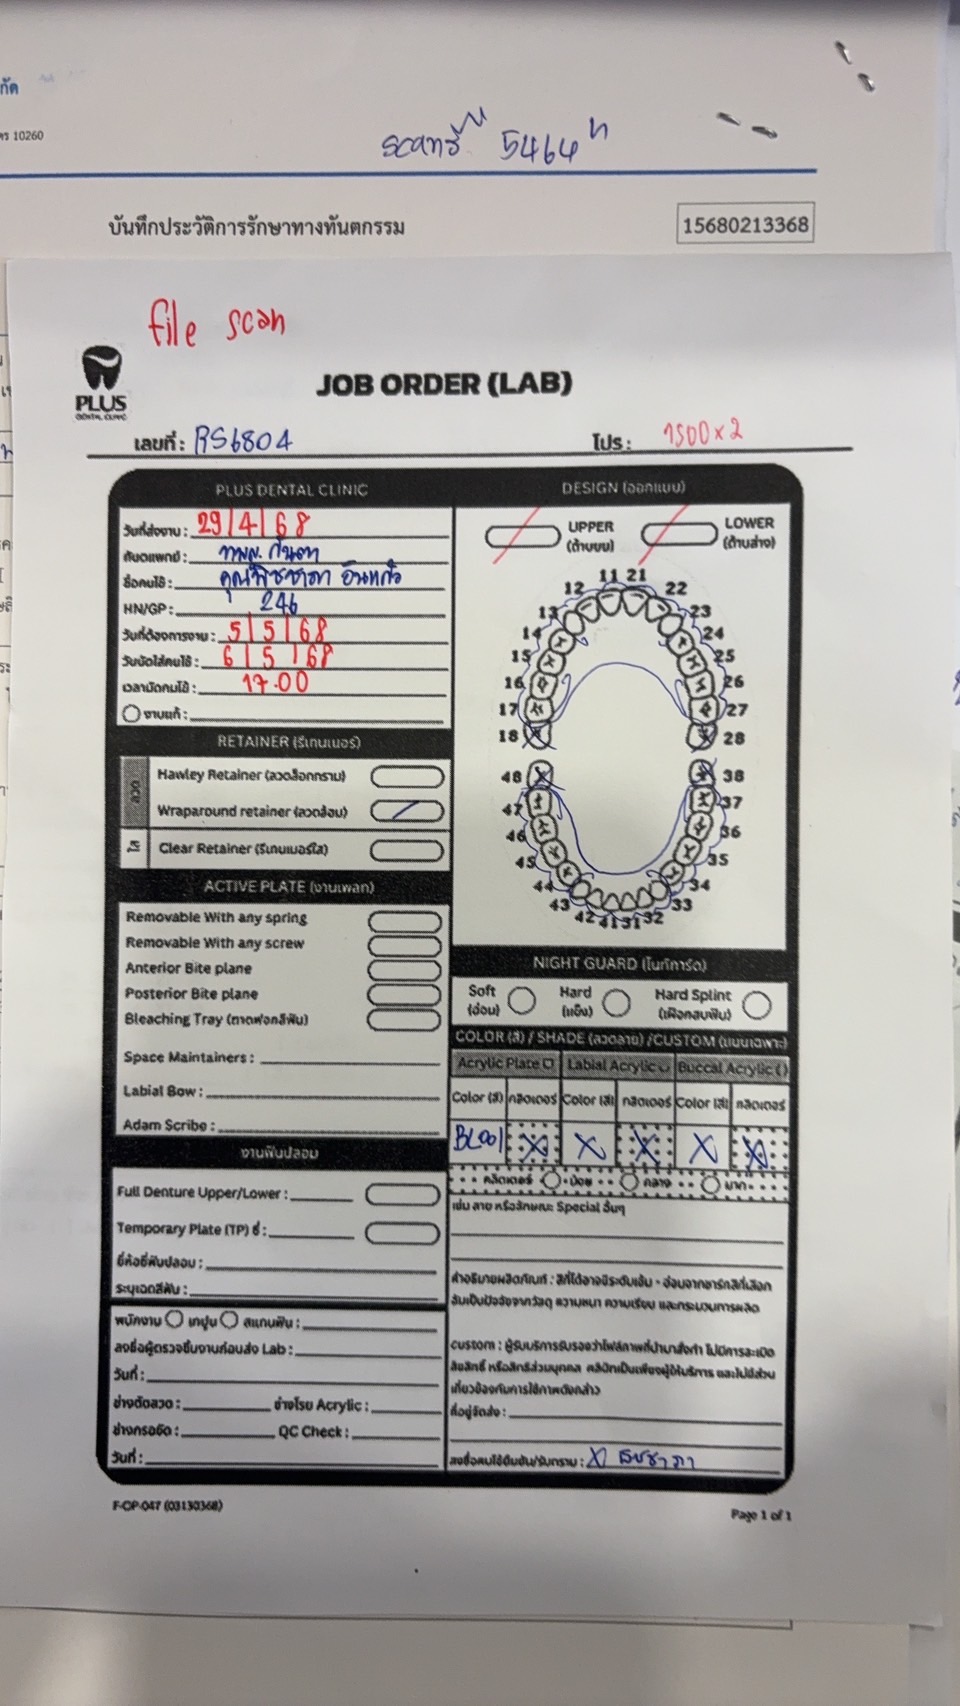 กัด
10260
scanที่ 5464
บันทึกประวัติการรักษาทางทันตกรรม
15680213368
file scan
PLUS
DENTAL CLINIC
JOB ORDER (LAB)
เลขที่ : RS6804
โปร : 1500x2
PLUS DENTAL CLINIC
วันที่ส่งงาน : 29/4/68
ทันตแพทย์ :
ชื่อคนไข้ :
HN/GP : 246
วันที่ต้องการงาน : 5/5/68
วันนัดใส่คนไข้ : 6/5/68
เวลานัดคนไข้ : 17.00
งานแก้ :
DESIGN (ออกแบบ)
UPPER
(ด้านบน)
LOWER
(ด้านล่าง)
11 21
12 22
13 23
14 24
15 25
16 26
17 27
18 28
48 38
47 37
46 36
45 35
44 34
43 33
42 41 31 32
RETAINER (รีเทนเนอร์)
ลวด
Hawley Retainer (ลวดล็อกกราม)
Wraparound retainer (ลวดอ้อม)
ใส
Clear Retainer (รีเทนเนอร์ใส)
ACTIVE PLATE (งานเพลท)
Removable With any spring
Removable With any screw
Anterior Bite plane
Posterior Bite plane
Bleaching Tray (ถาดฟอกสีฟัน)
Space Maintainers :
Labial Bow :
Adam Scribe :
งานฟันปลอม
Full Denture Upper/Lower :
Temporary Plate (TP) ซี่ :
ยี่ห้อซี่ฟันปลอม :
ระบุเฉดสีฟัน :
พนักงาน เทปูน สแกนฟัน :
ลงชื่อผู้ตรวจชิ้นงานก่อนส่ง Lab :
วันที่ :
ช่างดัดลวด : ช่างโรย Acrylic :
ช่างกรอขัด : QC Check :
วันที่ :
NIGHT GUARD (ไนท์การ์ด)
Soft
(อ่อน)
Hard
(แข็ง)
Hard Splint
(เฝือกสบฟัน)
COLOR (สี) / SHADE (ลวดลาย) /CUSTOM (แบบเฉพาะ)
Acrylic Plate Labial Acrylic Buccal Acrylic
Color (สี) กลิตเตอร์ Color (สี) กลิตเตอร์ Color (สี) กลิตเตอร์
BL001 X X X X X
กลิตเตอร์ น้อย กลาง มาก
เช่น ลาย หรือลักษณะ Special อื่นๆ
คำอธิบายผลิตภัณฑ์ : สีที่ได้อาจมีระดับเข้ม - อ่อนจากชาร์ทสีที่เลือก
อันเป็นปัจจัยจากวัสดุ ความหนา ความเรียบ และกระบวนการผลิต
Custom : ผู้รับบริการรับรองว่าไฟล์ภาพที่นำมาสั่งทำ ไม่มีการละเมิด
ลิขสิทธิ์ หรือสิทธิส่วนบุคคล คลินิกเป็นเพียงผู้ให้บริการ และไม่มีส่วน
เกี่ยวข้องกับการใช้ภาพดังกล่าว
ที่อยู่จัดส่ง :
ลงชื่อคนไข้ยืนยัน/รับทราบ : X
F-OP-047 (03130368)
Page 1 of 1